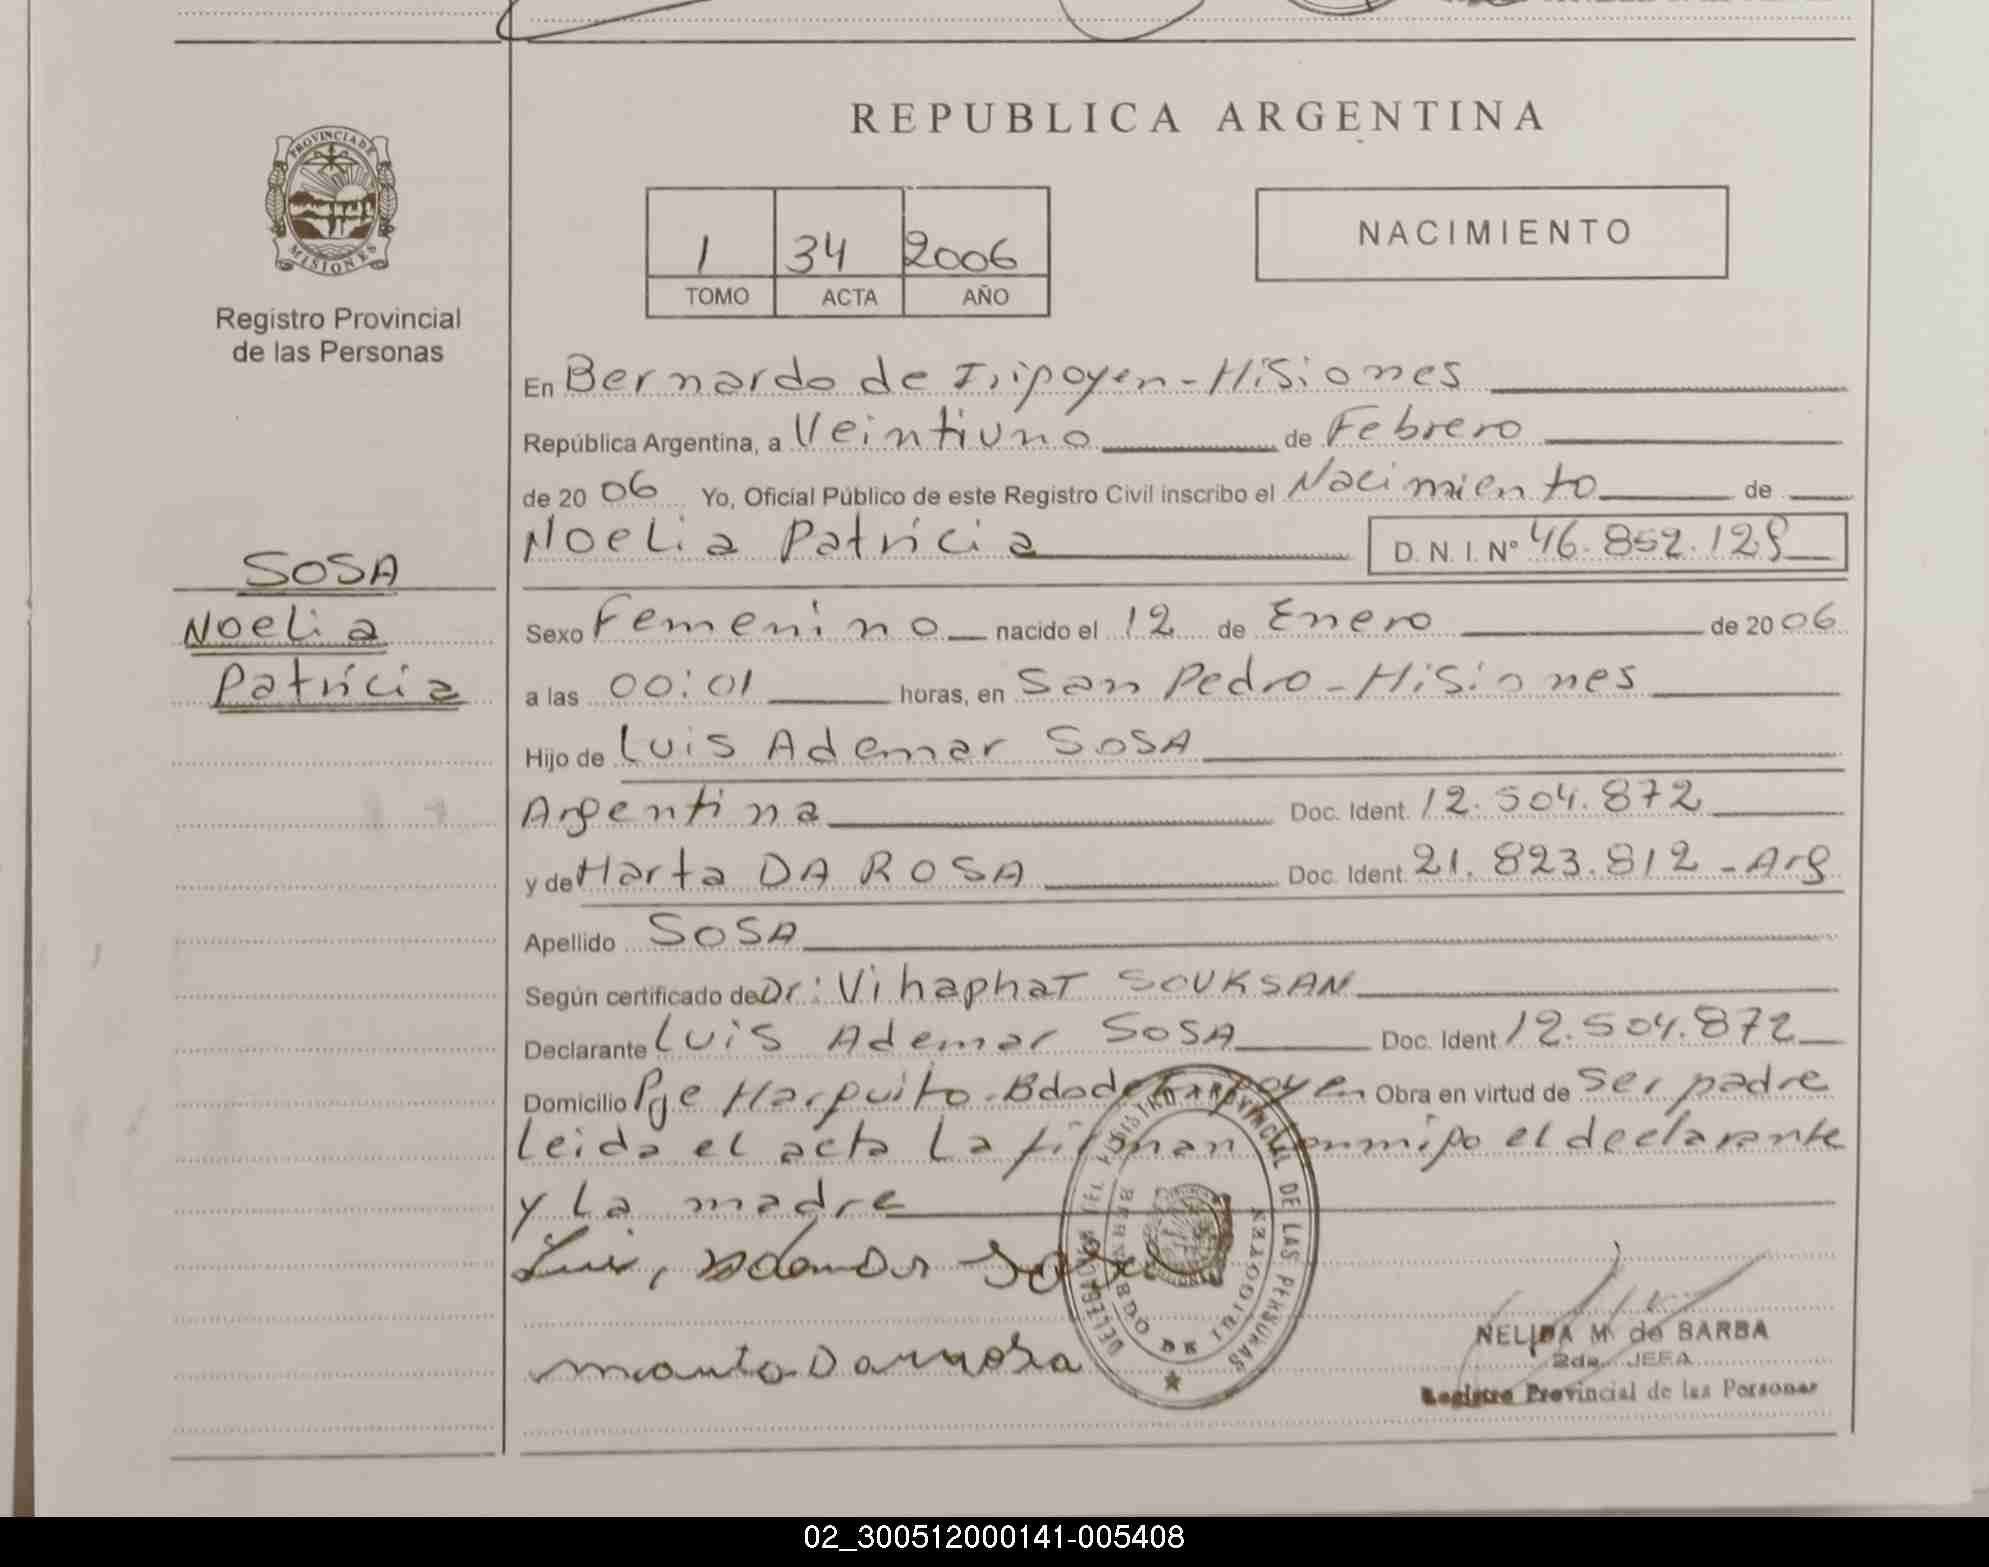 REPUBLICA ARGENTINA
PROVINCIA DE
MISIONES
Registro Provincial
de las Personas
1 34 2006
TOMO ACTA AÑO
NACIMIENTO
En Bernardo de Irigoyen - Misiones
República Argentina, a Veintiuno de Febrero
de 20 06 Yo, Oficial Público de este Registro Civil inscribo el Nacimiento de
Noelia Patricia D. N. I. Nº 46.852.129
SOSA
Noelia
Patricia
Sexo Femenino nacido el 12 de Enero de 20 06
a las 00:01 horas, en San Pedro - Misiones
Hijo de Luis Ademar SOSA
Argentina Doc. Ident. 12.504.872
y de Marta DA ROSA Doc. Ident. 21.823.812 - Arg
Apellido SOSA
Según certificado de Dr: Vihaphat SOUKSAN
Declarante Luis Ademar SOSA Doc. Ident 12.504.872
Domicilio Pje Marquito - Bdo de Irigoyen Obra en virtud de ser padre
Leida el acta La firman conmigo el declarante
y La madre
Luis, Ademar Sosa
DELEGACION DEL REGISTRO PROVINCIAL DE LAS PERSONAS
BERNARDO DE IRIGOYEN
NELIDA M. de BARBA
2da. JEFA
Registro Provincial de las Personas
02_300512000141-005408